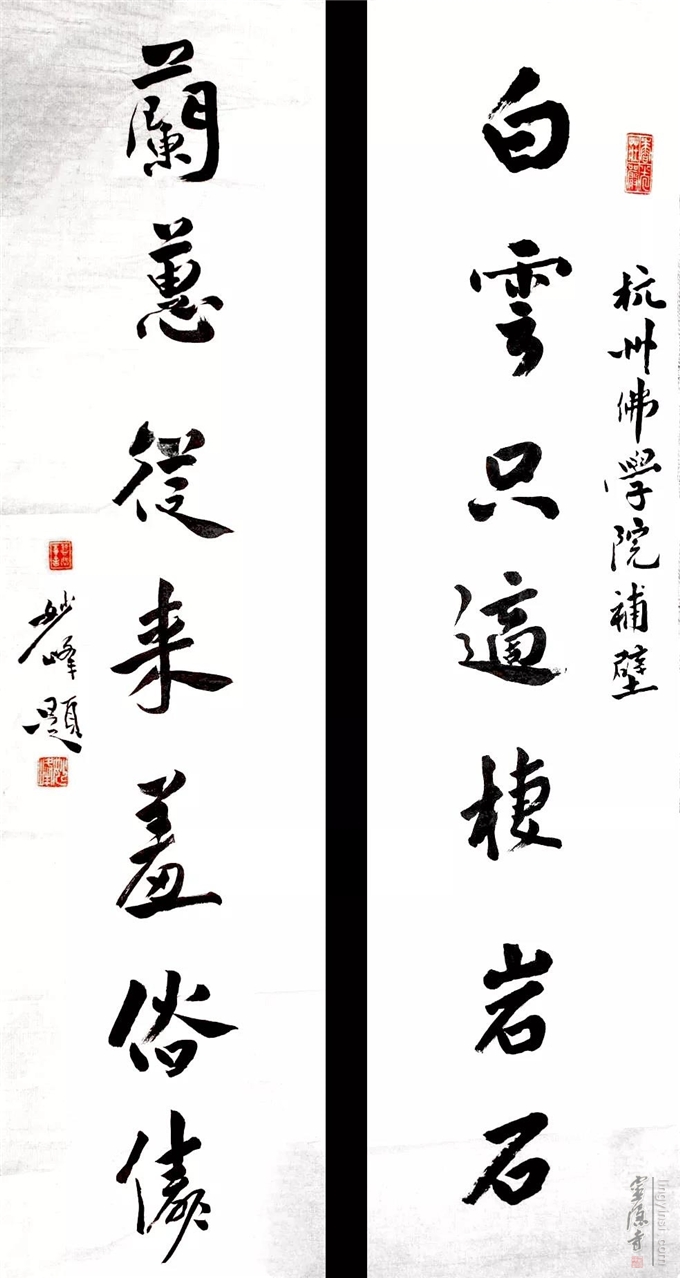 杭州佛學院補壁
白雲只適棲岩石
蘭蕙從来羞俗儔
妙峰題
靈隱寺
lingyinsi.com